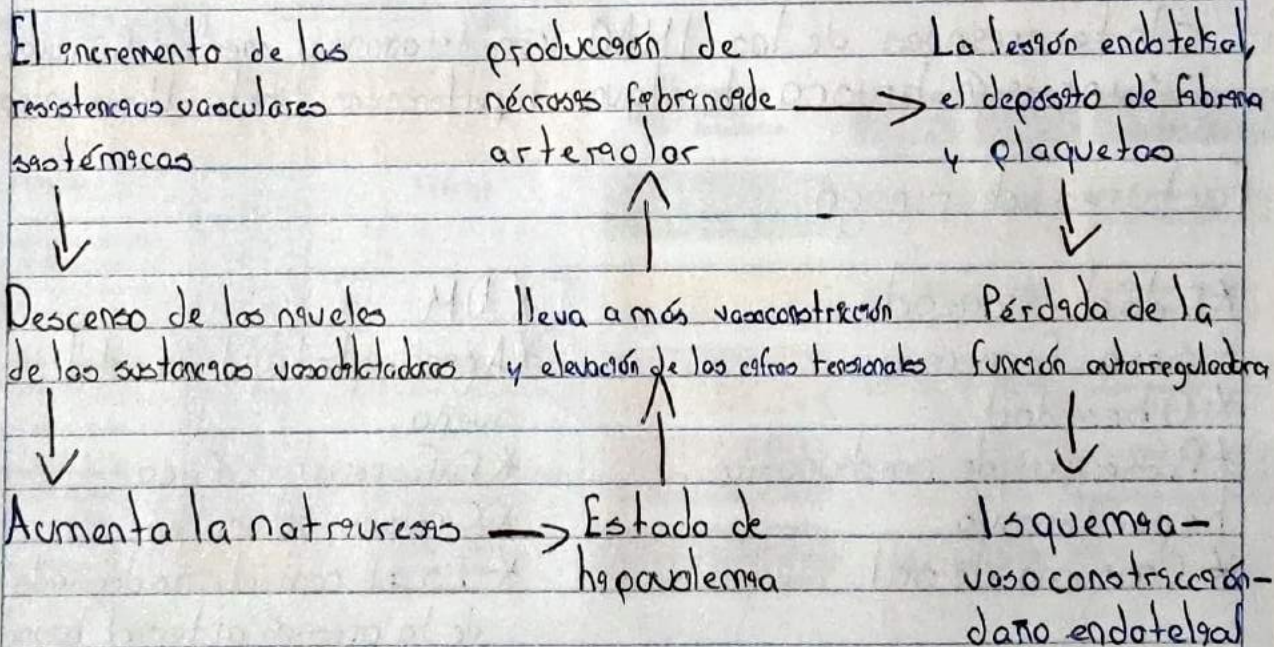 El incremento de las
resistencias vasculares
sistémicas
Descenso de los niveles
de las sustancias vasodilatadoras
Aumenta la natriuresis
Estado de
hipovolemia
lleva a más vasoconstricción
y elevación de las cifras tensionales
producción de
nécrosis fibrinoide
arteriolar
La lesión endotelial,
el depósito de fibrina
y plaquetas
Pérdida de la
función autorreguladora
Isquemia-
vasoconstricción-
daño endotelial